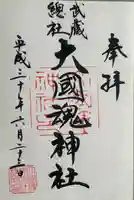 奉拝
武蔵
總社
大國魂神社
平成三十年六月二十三日